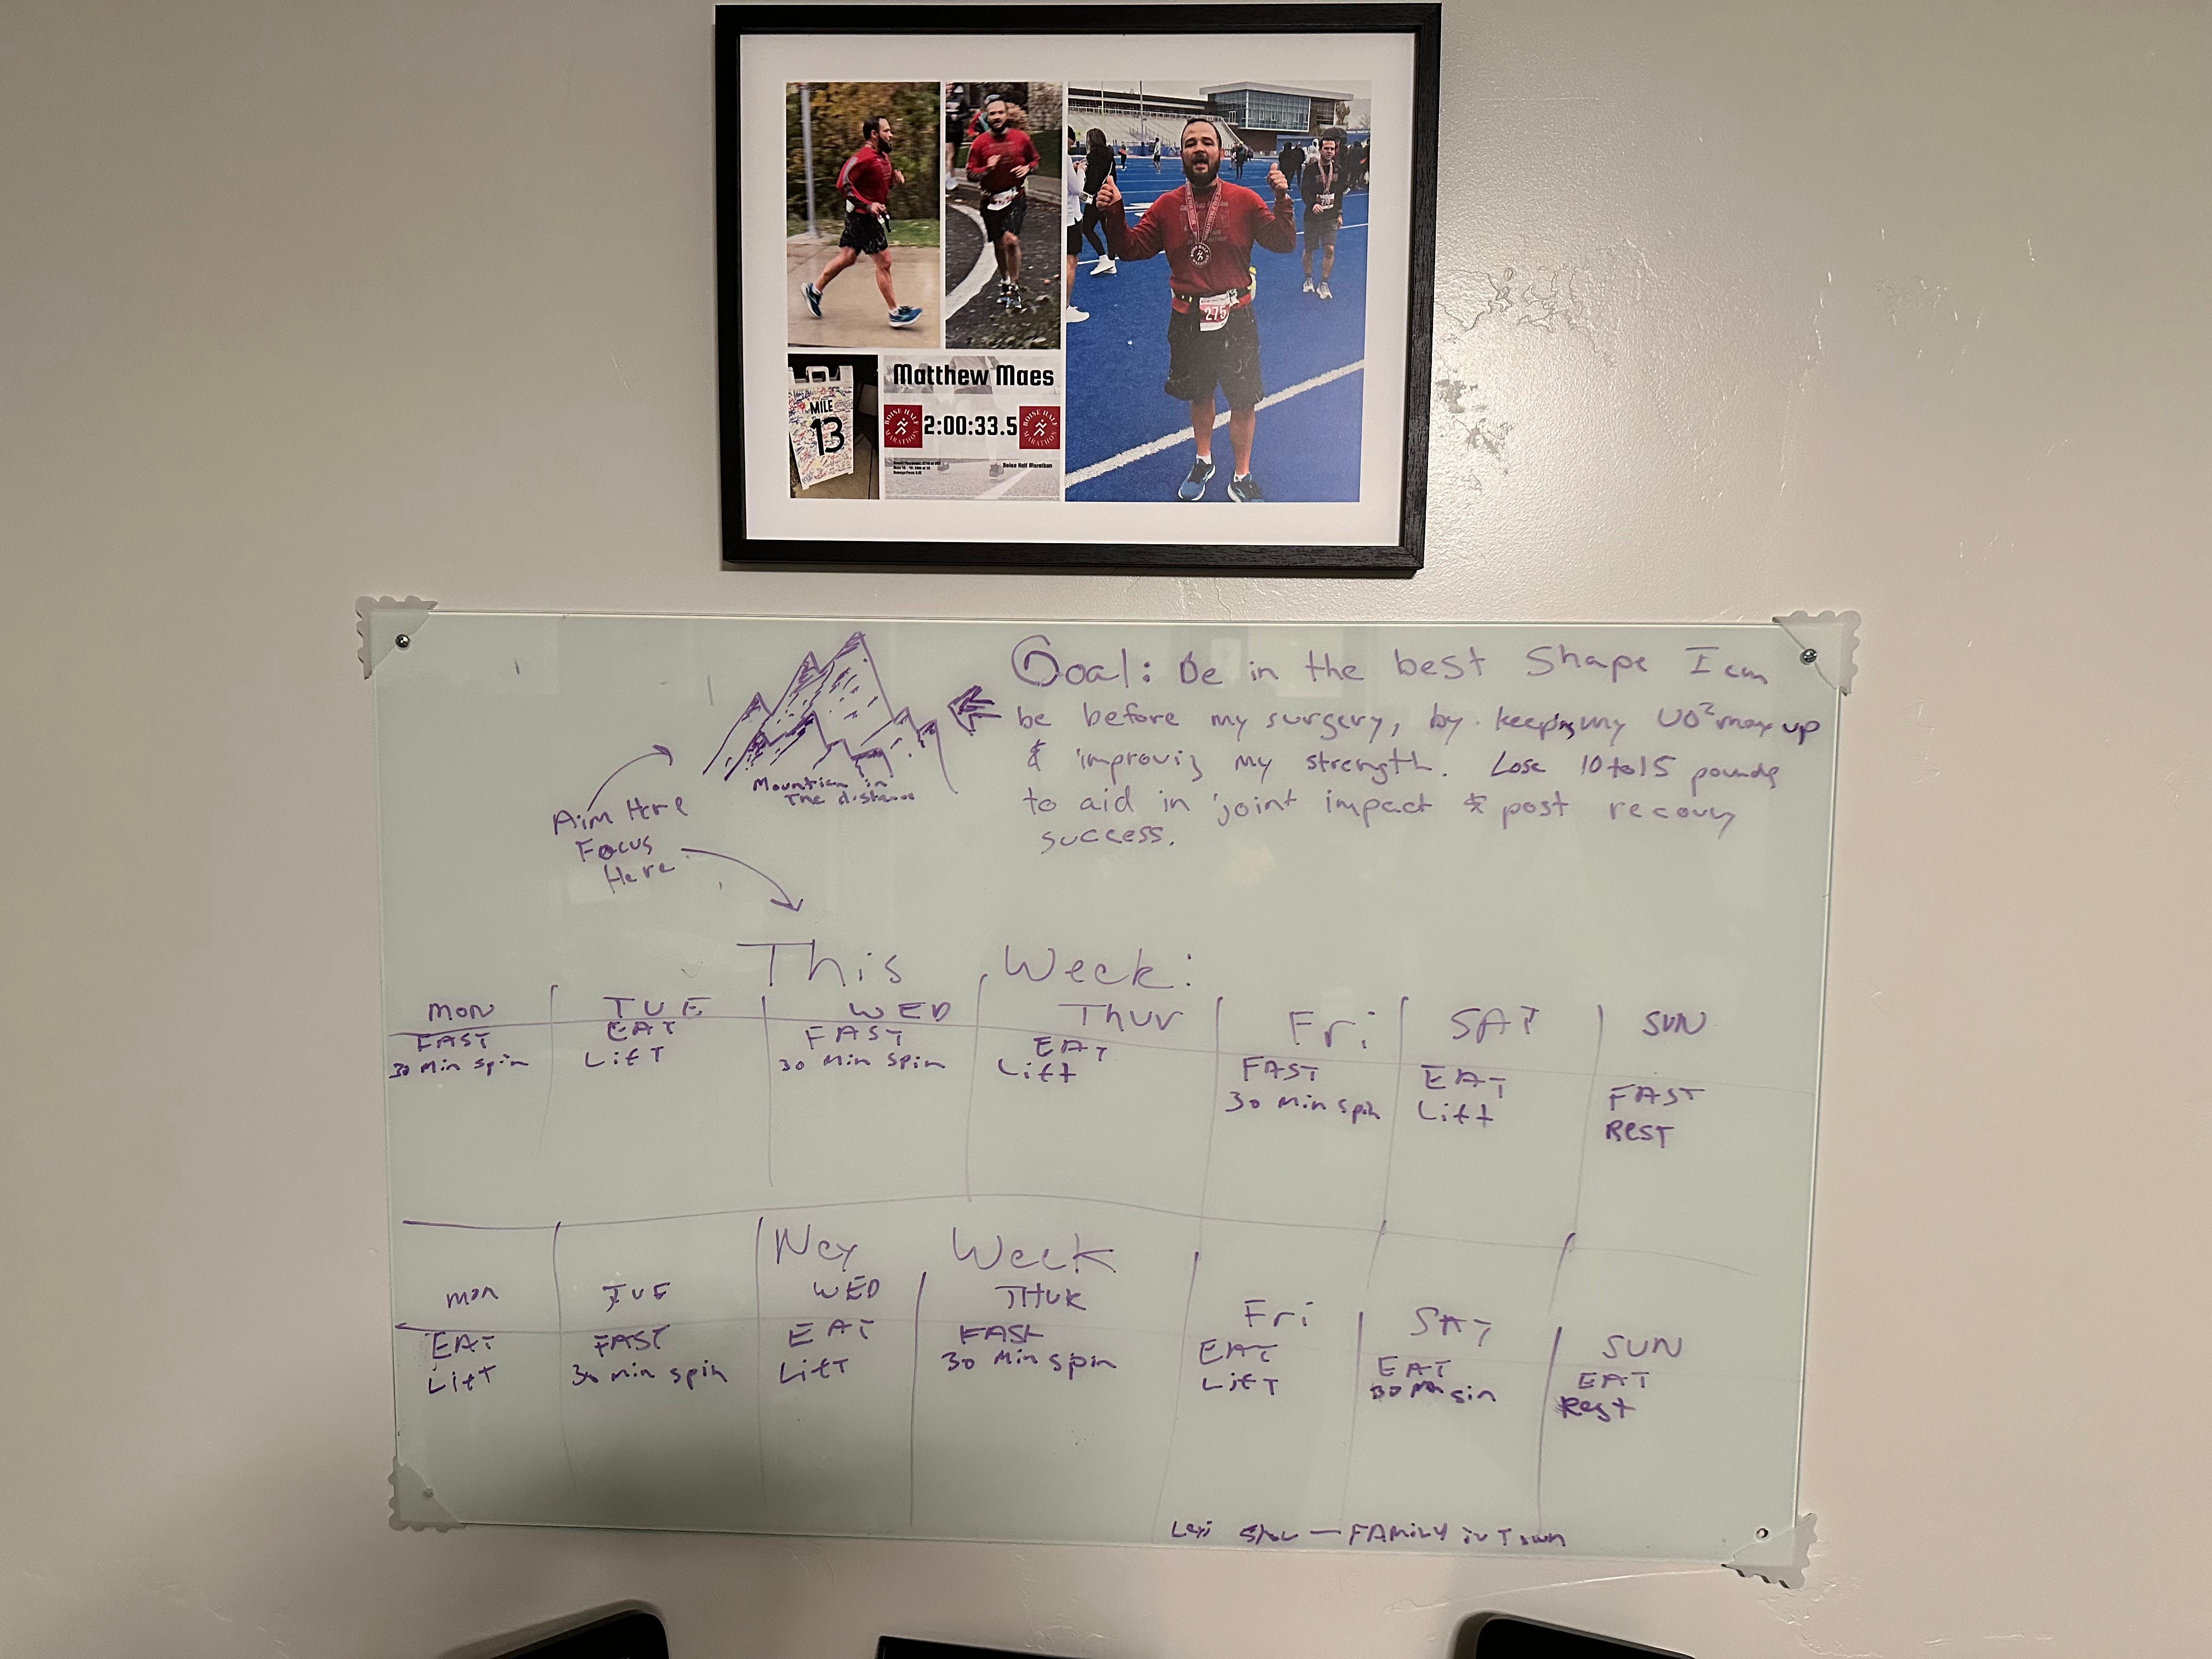 MILE
13
Matthew Maes
BOISE HALF MARATHON
2:00:33.5
BOISE HALF MARATHON
Boise Half Marathon
275
Goal: Be in the best Shape I can
be before my surgery, by keeping my VO² max up
& improving my strength. Lose 10 to 15 pounds
to aid in joint impact & post recovery
success.
Mountian in
The distance
Aim Here
Focus
Here
This Week:
MON TUE WED THUR Fri SAT SUN
FAST EAT FAST EAT FAST EAT FAST
30 Min spin Lift 30 Min spin Lift 30 Min spin Lift REST
Nex Week
Mon TUE WED THUR Fri SAT SUN
EAT FAST EAT FAST EAT EAT EAT
Lift 30 min spin Lift 30 Min spin Lift 30 Min Rest
Lexi — FAMILY in Town